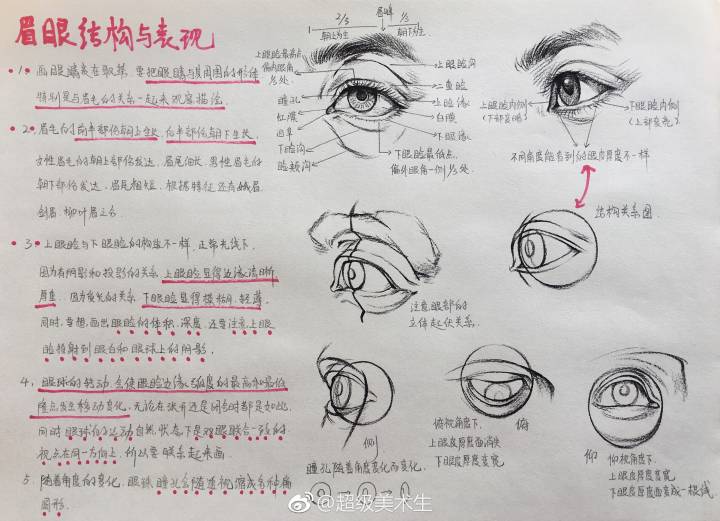 眉眼结构与表现
1. 画眼睛贵在取萃，要把眼睛与其周围的形体
特别是与眉毛的关系一起来观察描绘.
2. 眉毛的前半部份朝上生长，后半部份朝下生长.
女性眉毛的朝上部份发达，眉尾细长，男性眉毛的
朝下部份发达，眉尾粗短，根据特征还有娥眉
剑眉、柳叶眉之分.
3. 上眼睑与下眼睑的构造不一样，正常光线下，
因为有阴影和投影的关系，上眼睑显得边缘清晰
厚重，因为受光的关系，下眼睑显得模糊、轻薄，
同时，要想画出眼睑的体积，深度，还要注意上眼
睑投射到眼白和眼球上的阴影.
4. 眼球的转动，会使眼睑边缘弧度的最高和最低
隆点发生移动变化，无论在张开还是闭合时都是如此.
同时眼球的运动自然状态下是双眼联合一致的
视点在同一方向上，所以要联系起来画.
5. 随着角度的变化，眼珠瞳孔会随透视缩成各种椭
圆形.
2/3
眉峰
1/3
朝上为生
朝下为生
上眼睑最高点
偏内眼角
名处
瞳孔
虹膜
泪阜
下睑沟
睑颊沟
上眼睑沟
二重睑
上睑缘
白膜
下眼缘
下眼睑最低点，
偏外眼角一侧名处
上眼睑内侧
下眼睑内侧
不同角度能看到的眼皮厚度不一样
结构关系图
注意眼部的
立体起伏关系.
仰
瞳孔随着角度变化而变化.
俯视角度下，
俯
上眼皮厚度面消失
下眼皮厚度变宽
仰
仰视角度下.
上眼皮厚度变宽
下眼皮厚度面变成一根线
@超级美术生